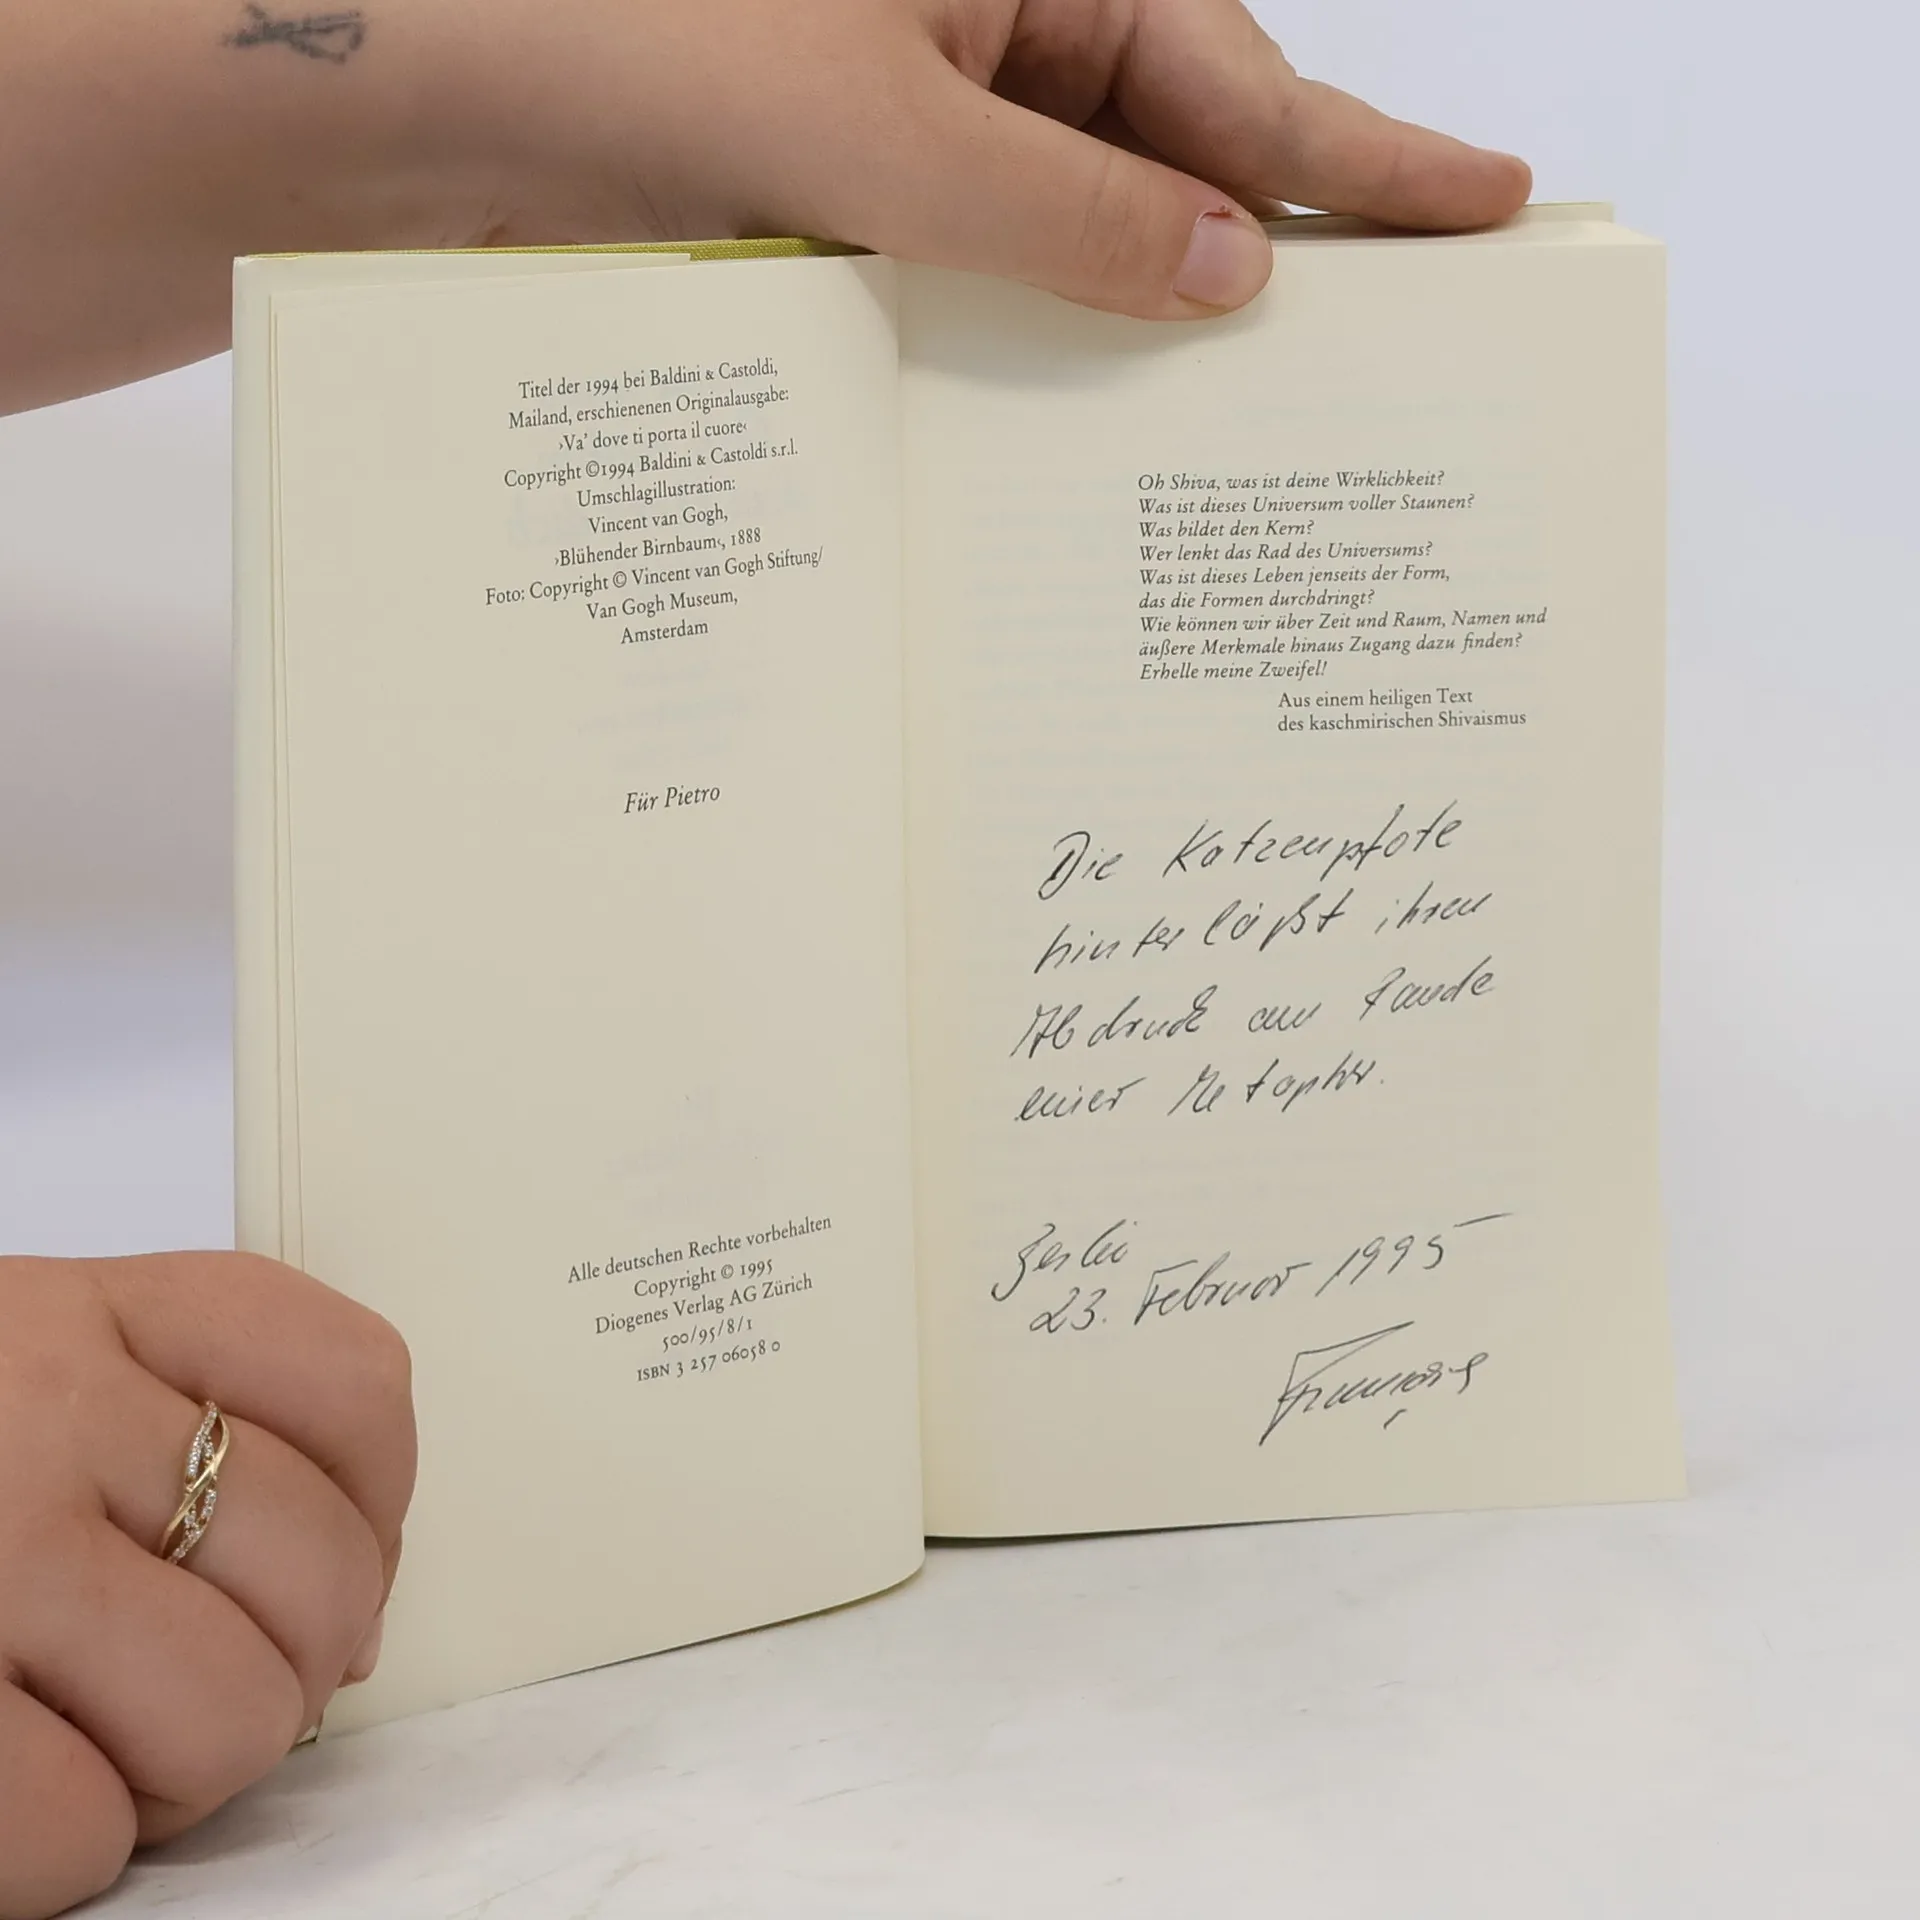 Titel der 1994 bei Baldini & Castoldi,
Mailand, erschienenen Originalausgabe:
›Va' dove ti porta il cuore‹
Copyright ©1994 Baldini & Castoldi s.r.l.
Umschlagillustration:
Vincent van Gogh,
›Blühender Birnbaum‹, 1888
Foto: Copyright © Vincent van Gogh Stiftung/
Van Gogh Museum,
Amsterdam
Für Pietro
Alle deutschen Rechte vorbehalten
Copyright © 1995
Diogenes Verlag AG Zürich
500/95/8/1
ISBN 3 257 06058 0
Oh Shiva, was ist deine Wirklichkeit?
Was ist dieses Universum voller Staunen?
Was bildet den Kern?
Wer lenkt das Rad des Universums?
Was ist dieses Leben jenseits der Form,
das die Formen durchdringt?
Wie können wir über Zeit und Raum, Namen und
äußere Merkmale hinaus Zugang dazu finden?
Erhelle meine Zweifel!
Aus einem heiligen Text
des kaschmirischen Shivaismus
Die Katzenpfote
hinterläßt ihren
Abdruck am Rande
einer Metapher.
23. Februar 1995